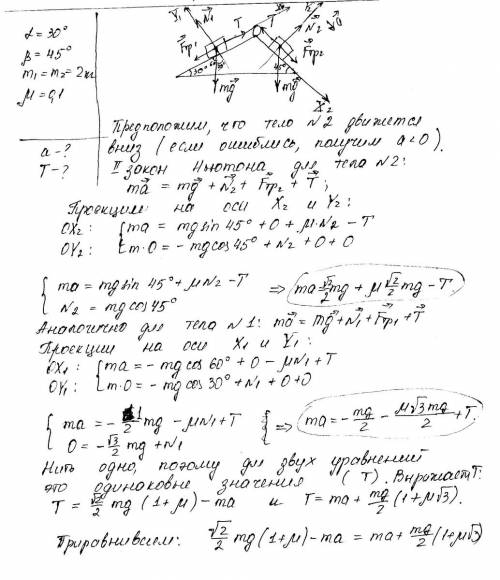 α = 30°
β = 45°
m₁ = m₂ = 2кг
μ = 0,1
a - ?
T - ?
Y₁ N₁ T T Y₂ N₂ a
Fтр₁ Fтр₂
30° 60° 45°
mg mg X₂
Предположим, что тело N2 движется
вниз (если ошиблись, получим a<0).
II закон Ньютона для тела N2:
ma = mg + N₂ + Fтр₂ + T;
Проекции на оси X₂ и Y₂:
OX₂: { ma = mg sin 45° + 0 + μ·N₂ - T
OY₂: { m·0 = - mg cos 45° + N₂ + 0 + 0
{ ma = mg sin 45° + μN₂ - T ⇒ ma √2/2 mg + μ √2/2 mg - T
N₂ = mg cos 45°
Аналогично для тела N1: ma = mg + N₁ + Fтр₁ + T
Проекции на оси X₁ и Y₁:
OX₁: { ma = - mg cos 60° + 0 - μN₁ + T
OY₁: { m·0 = - mg cos 30° + N₁ + 0 + 0
{ ma = - 1/2 mg - μN₁ + T } ⇒ ma = - mg/2 - μ√3mg/2 + T
0 = - √3/2 mg + N₁
Нить одно, потому для двух уравнений
это одинаковые значения (T). Выражаем T:
T = √2/2 mg (1+μ) - ma и T = ma + mg/2 (1+μ√3).
Приравниваем: √2/2 mg (1+μ) - ma = ma + mg/2 (1+μ√3)